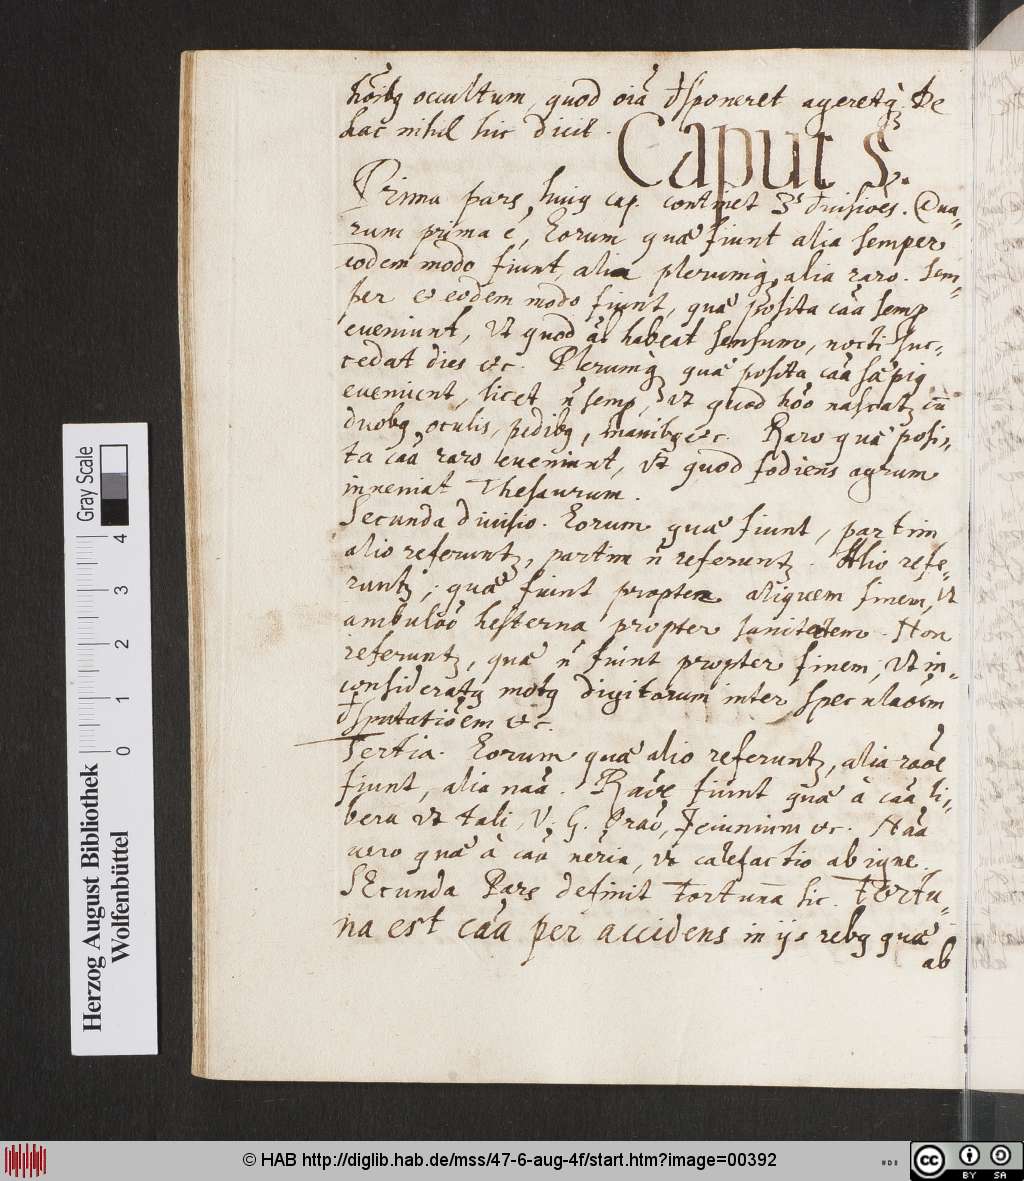 hōibꝫ occultum, quod oīa dsponeret ageretqꝫ. De
hac nihil hic dicit.
Caput 5.
Prima pars huiꝰ cap. continet 3s diuisiōes. Qua-
rum prima ē, Eorum quæ fiunt alia semper
eodem modo fiunt, alia plerumqꝫ, alia raro. Sem-
per et eodem modo fiunt, quæ posita cāa semp
eveniunt, Vt quod āl habeat sensum, nocti suc-
cedat dies etc. Plerumqꝫ quæ posita cāa sæpiꝰ
eveniunt, licet n̄ semp, vt quod hōo nascatꝛ cū
duobꝫ oculis, pedibꝫ, manibꝫ etc. Raro quæ posi-
ta cāa raro eveniunt, vt quod fodiens agrum
inveniat Thesaurum.
Secunda divisio. Eorum quæ fiunt, partim
alio referuntꝛ, partim n̄ referuntꝛ. Alio refe-
runtꝛ, quæ fiunt propter aliquem finem, vt
ambulāo hesterna propter sanitatem. Non
referuntꝛ, quæ n̄ fiunt propter finem, vt in-
consideratꝰ motꝰ digitorum inter speculāoēm
dsputatiōem etc.
Tertia. Eorum quæ alio referuntꝛ, alia rāoē
fiunt, alia nāa. Rāoē fiunt quæ à cāa li-
bera vt tali, V. G. Orāo, Jeiunium etc. Nāa
vero quæ à cāa nēria, vt calefactio ab igne.
SEcunda Pars definit Fortunā sic. Fortu-
na est cāa per accidens in ijs rebꝫ quæ
ab
Gray Scale
0 1 2 3 4
Herzog August Bibliothek
Wolfenbüttel
© HAB http://diglib.hab.de/mss/47-6-aug-4f/start.htm?image=00392
cc BY SA